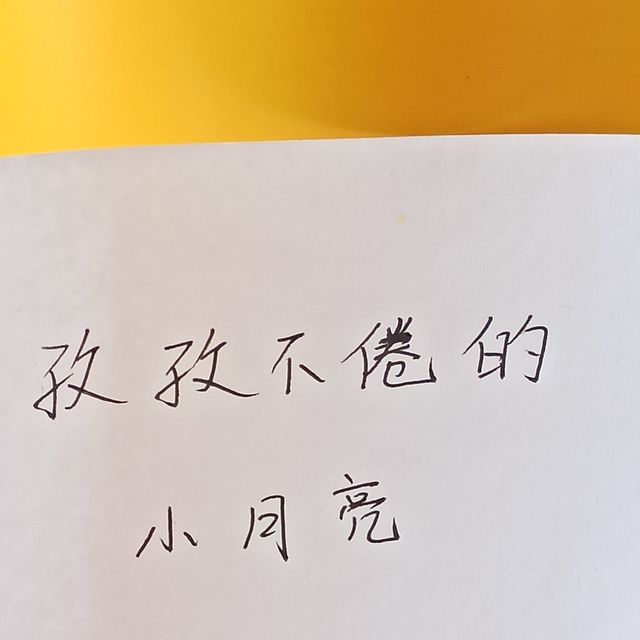 孜孜不倦的
小月亮